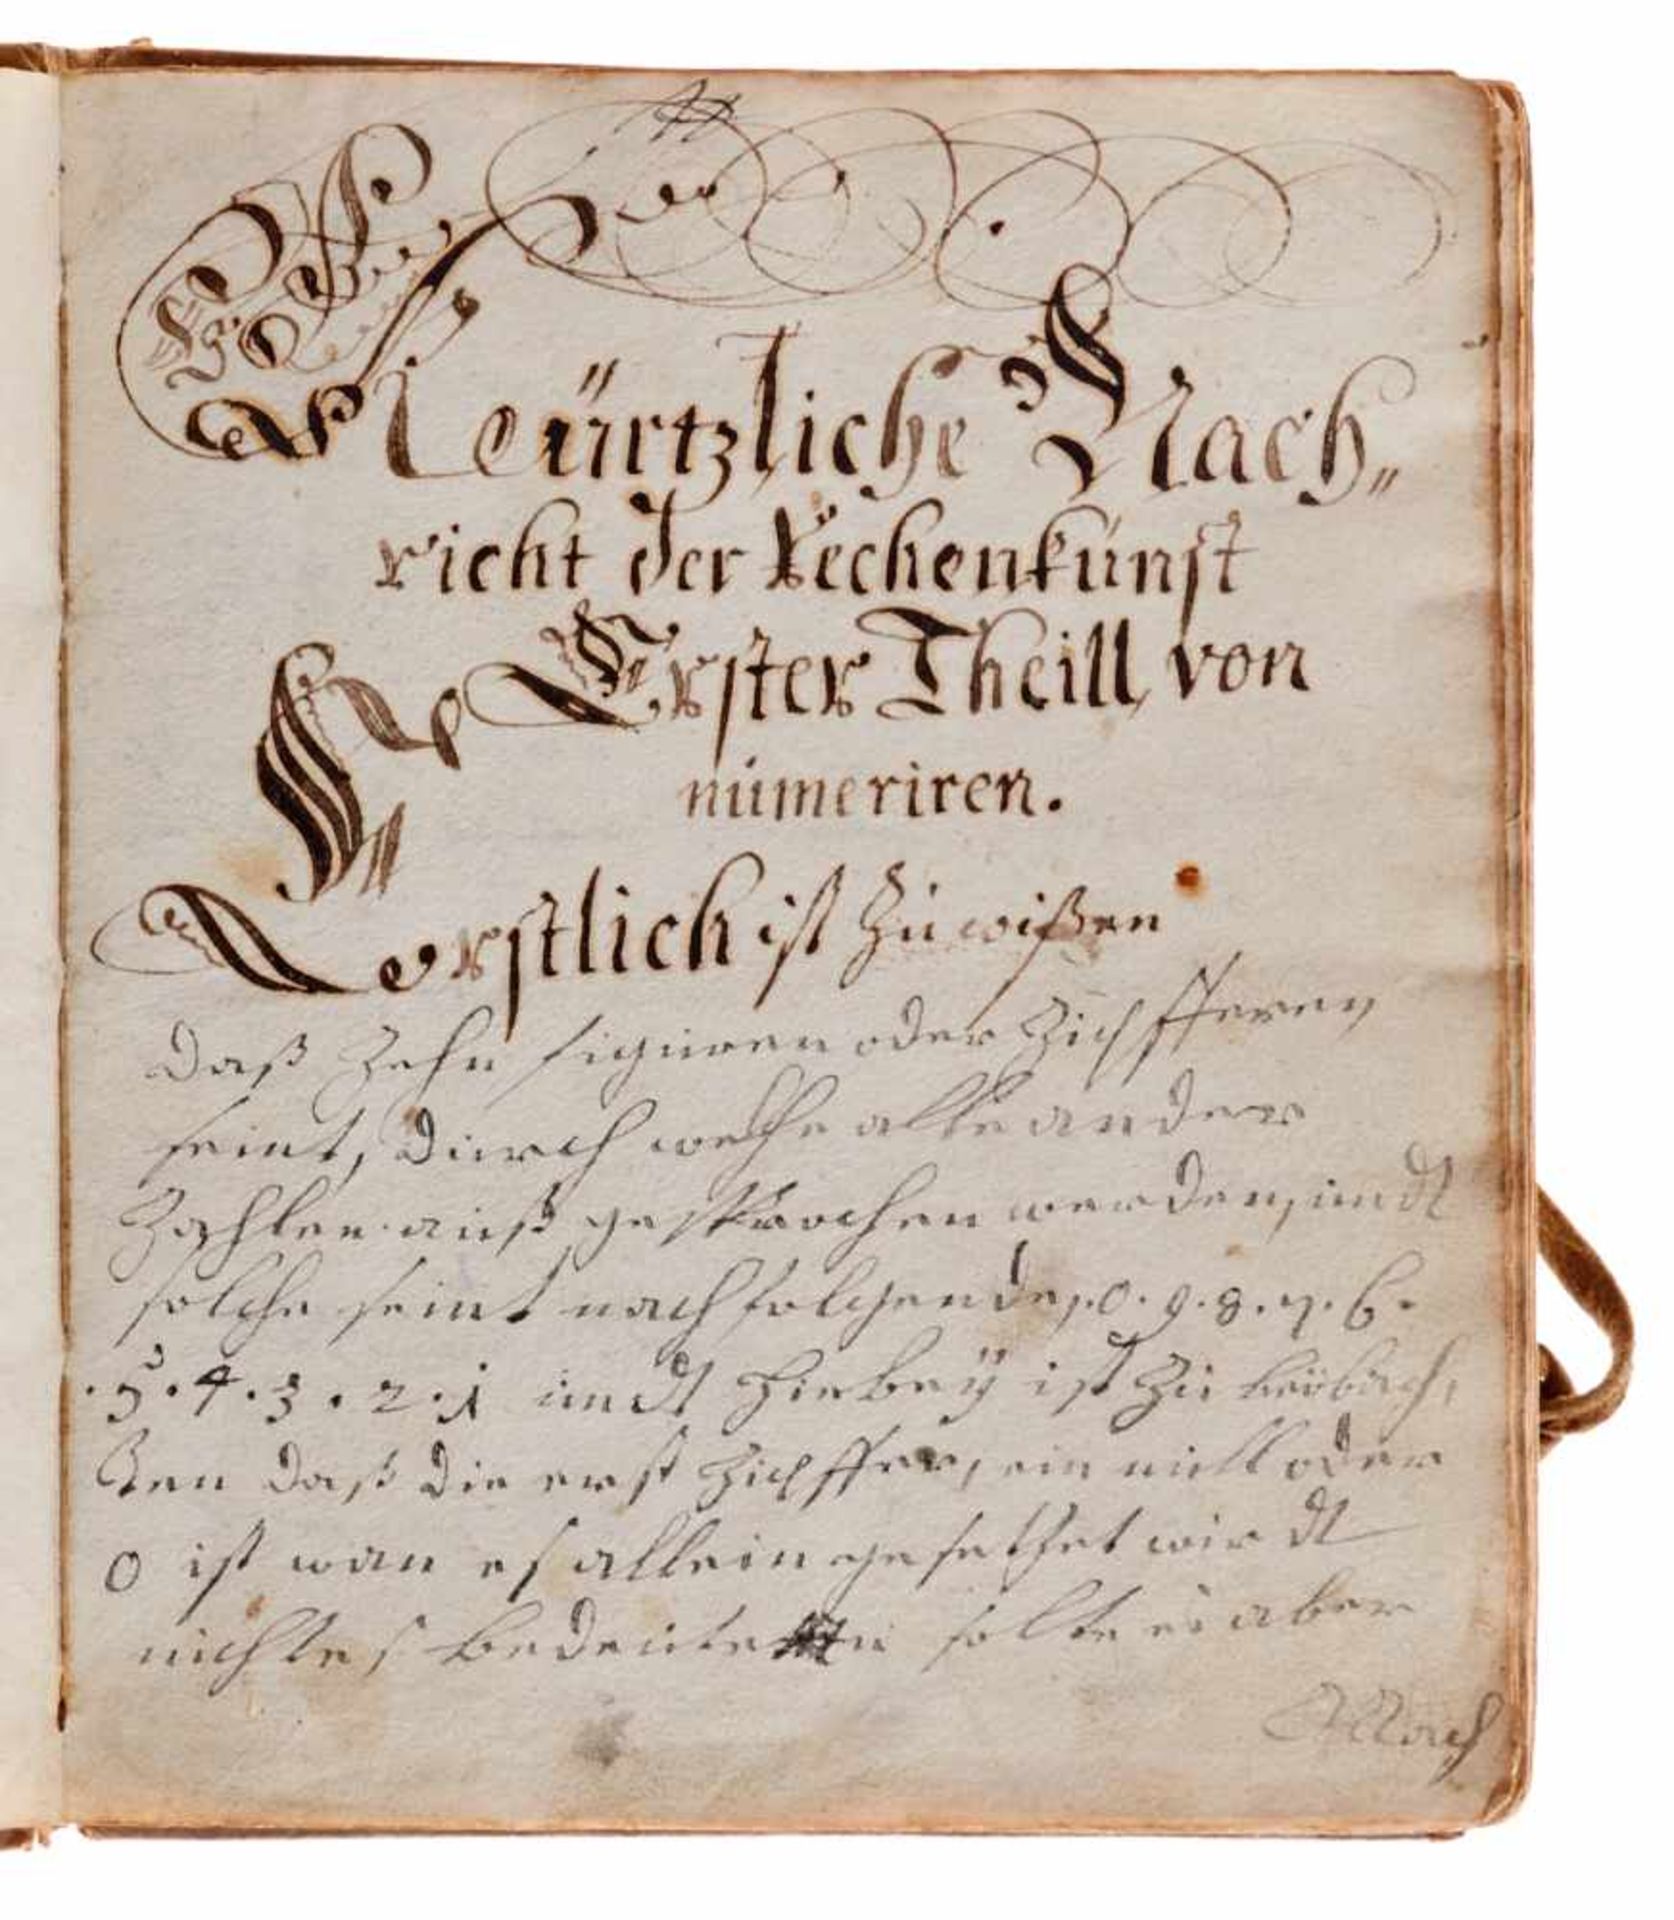 Kürtzliche Nach„
richt der Rechenkunst
Erster Theill, von
numeriren.
Erstlich ist zu wißen
daß zehn figuren oder Zipfferen
seint, durch welche alle ander
Zahlen auß gesprochen werden, undt
solche seint nachfolgende, .0.9.8.7.6.
.5.4.3.2.1 undt hiebeÿ ist zu beobach,
ten daß die erst Zipffer, ein null oder
0 ist wan es allein gesetzet wirdt
nichtes bedeute solte es aber
Nach